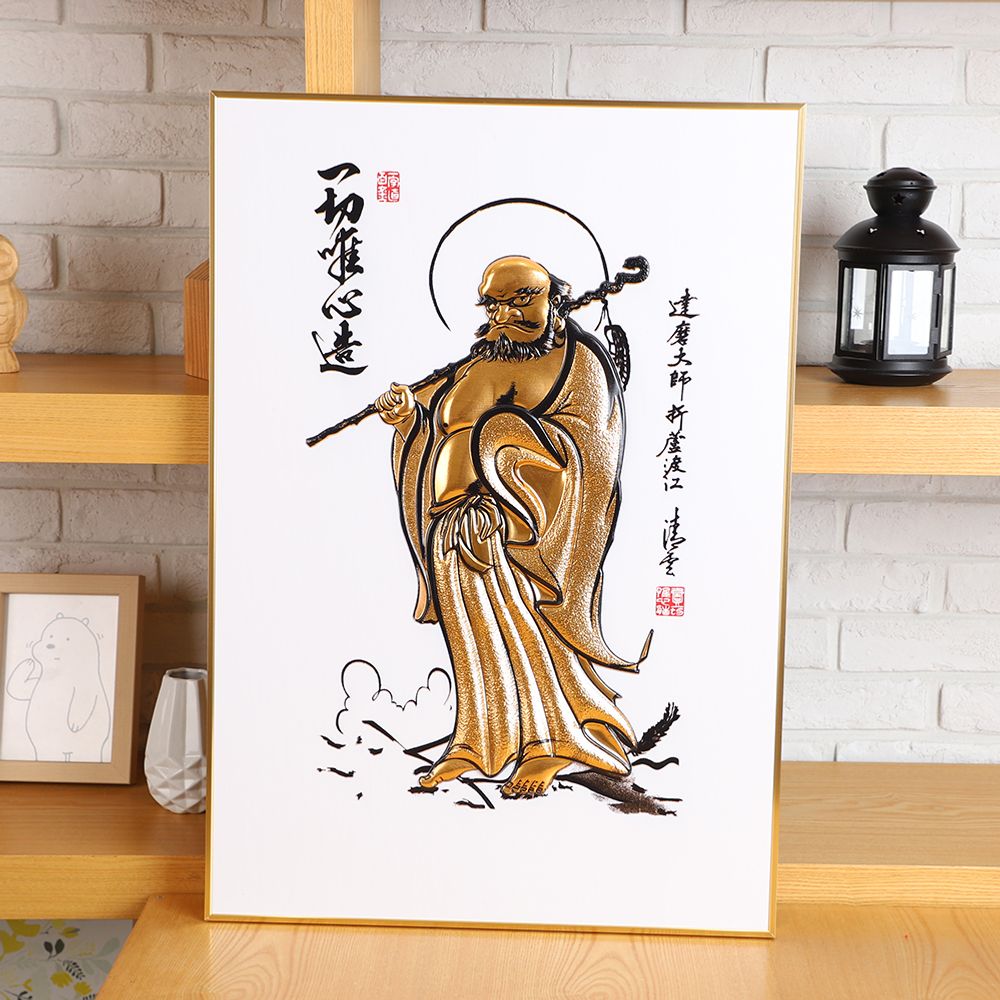 一切唯心造
達磨大師折蘆渡江
清雲